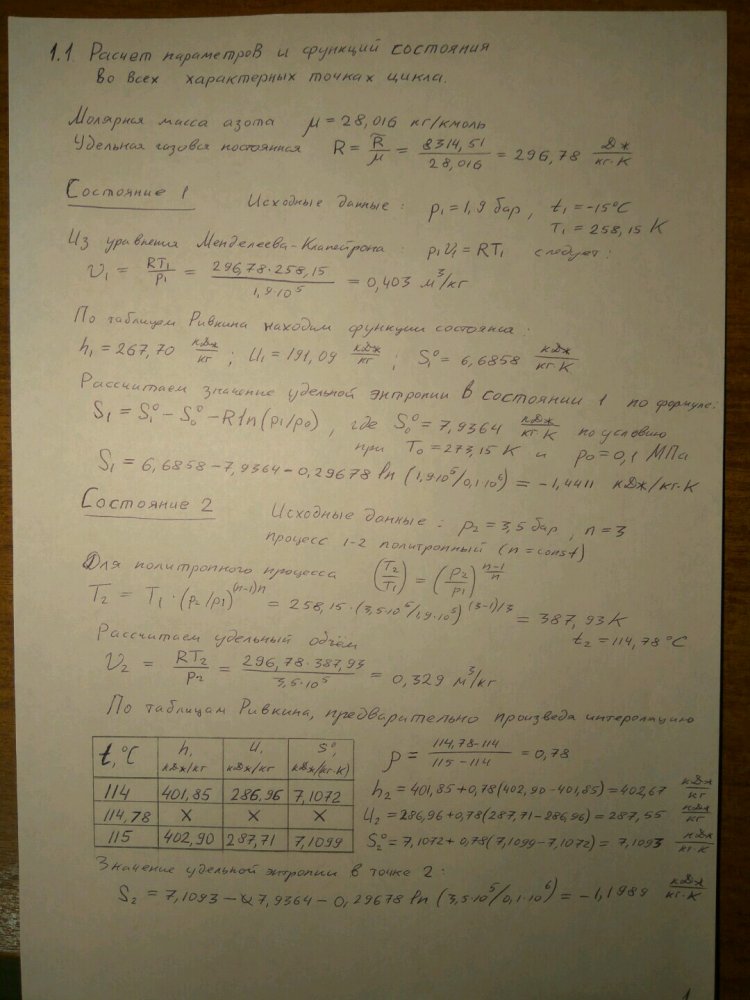 1.1 Расчет параметров и функций состояния
во всех характерных точках цикла.
Молярная масса азота μ = 28,016 кг/кмоль
Удельная газовая постоянная R = R̅/μ = 8314,51/28,016 = 296,78 Дж/кг·К
Состояние 1 Исходные данные: p₁ = 1,9 бар, t₁ = -15°C
T₁ = 258,15 К
Из уравнения Менделеева-Клапейрона: p₁υ₁ = RT₁ следует:
υ₁ = RT₁/p₁ = 296,78·258,15/1,9·10⁵ = 0,403 м³/кг
По таблицам Ривкина находим функции состояния:
h₁ = 267,70 кДж/кг ; U₁ = 191,09 кДж/кг ; S₁° = 6,6858 кДж/кг·К
Рассчитаем значение удельной энтропии в состоянии 1 по формуле:
S₁ = S₁° - S₀° - R ln(p₁/p₀), где S₀° = 7,9364 кДж/кг К по условию
при T₀ = 273,15 К и p₀ = 0,1 МПа
S₁ = 6,6858 - 7,9364 - 0,29678 ln (1,9·10⁵/0,1·10⁶) = -1,4411 кДж/кг·К
Состояние 2 Исходные данные: p₂ = 3,5 бар, n = 3
процесс 1-2 политропный (n = const)
Для политропного процесса (T₂/T₁) = (p₂/p₁)^(n-1/n)
T₂ = T₁ · (p₂/p₁)^(n-1)/n = 258,15·(3,5·10⁶/1,9·10⁵)^(3-1)/3 = 387,93 К
t₂ = 114,78 °C
Рассчитаем удельный объём
υ₂ = RT₂/p₂ = 296,78·387,93/3,5·10⁵ = 0,329 м³/кг
По таблицам Ривкина, предварительно произведа интерполацию
t,°C h, кДж/кг U, кДж/кг S°, кДж/(кг·К)
114 401,85 286,96 7,1072
114,78 X X X
115 402,90 287,71 7,1099
ρ = 114,78-114/115-114 = 0,78
h₂ = 401,85+0,78(402,90-401,85) = 402,67 кДж/кг
U₂ = 286,96+0,78(287,71-286,96) = 287,55 кДж/кг
S₂° = 7,1072+0,78(7,1099-7,1072) = 7,1093 кДж/кг·К
Значение удельной энтропии в точке 2:
S₂ = 7,1093 - 7,9364 - 0,29678 ln (3,5·10⁵/0,1·10⁶) = -1,1989 кДж/кг·К